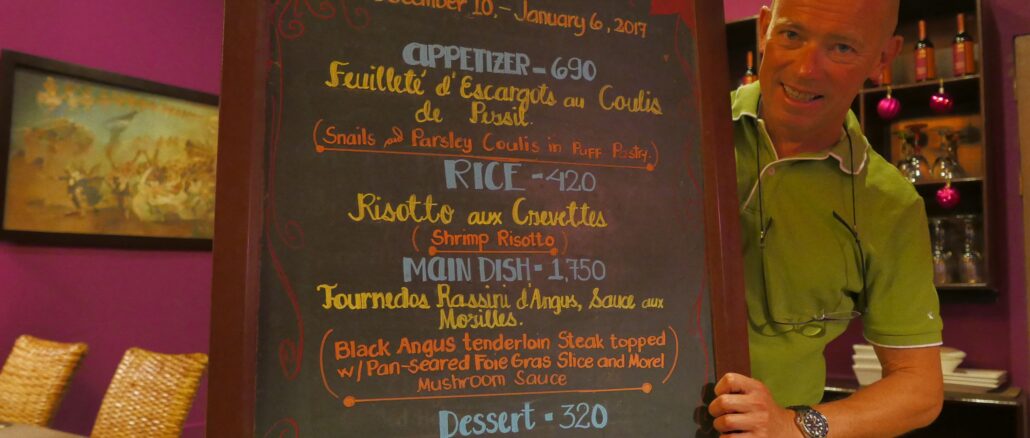 December 10, - January 6, 2017
APPETIZER - 690
Feuilleté d'Escargots au Coulis
de Persil.
(Snails and Parsley Coulis in Puff Pastry.)
RICE - 420
Risotto aux Crevettes
(Shrimp Risotto)
MAIN DISH - 1,750
Tournedos Rassini d'Angus, Sauce aux
Morilles.
(Black Angus tenderloin Steak topped
w/ Pan-seared Foie Gras Slice and Morel
Mushroom Sauce)
Dessert - 320